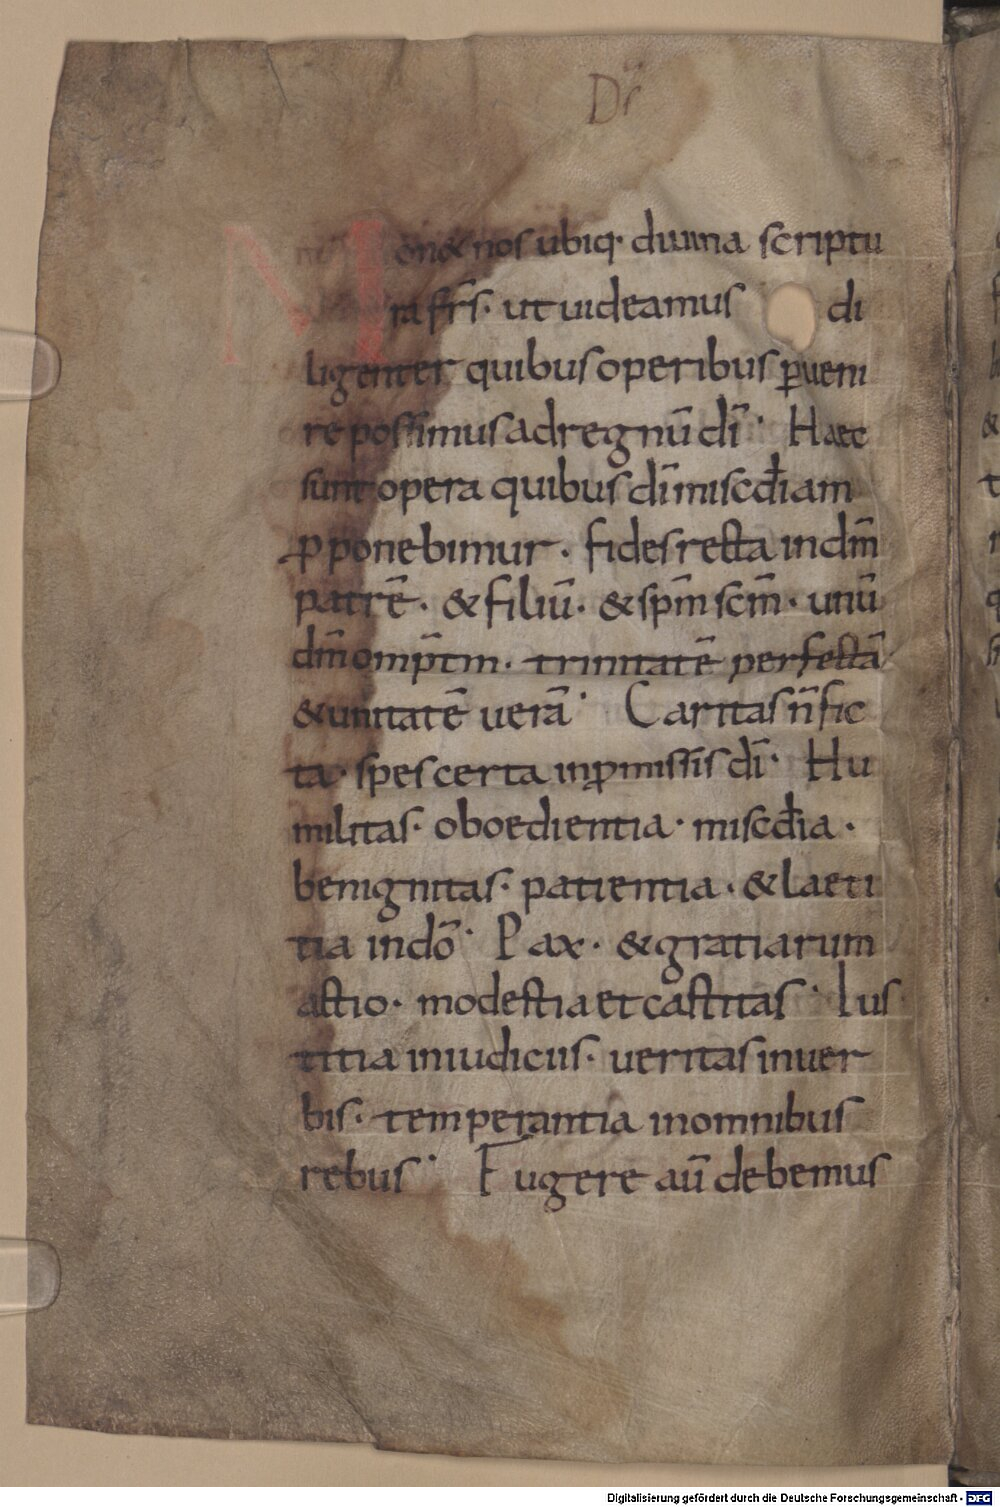 Dr̄
Mon& nos ubiq· diuina scriptu
ra fr̄s· ut uideamus di
ligenter quibus operibus ꝑueni
re possimus ad regnū dī· Haec
sunt opera quibus dī misc̄diam
ꝓponebimur· fides recta in dm̄
patrē· & filiū· & spm̄ scm̄· unū
dm̄ omp̄tm· trinitatē perfectā
& unitatē uerā· Caritas n̄ fic
ta· spes certa in ꝓmissis dī· Hu
militas· oboedientia· misc̄dia·
benignitas· patientia· & laeti
tia in dō· Pax· & gratiarum
actio· modestia et castitas· Ius
titia in iudiciis· ueritas in uer
bis· temperantia in omnibus
rebus· Fugere aū debemus
Digitalisierung gefördert durch die Deutsche Forschungsgemeinschaft - DFG